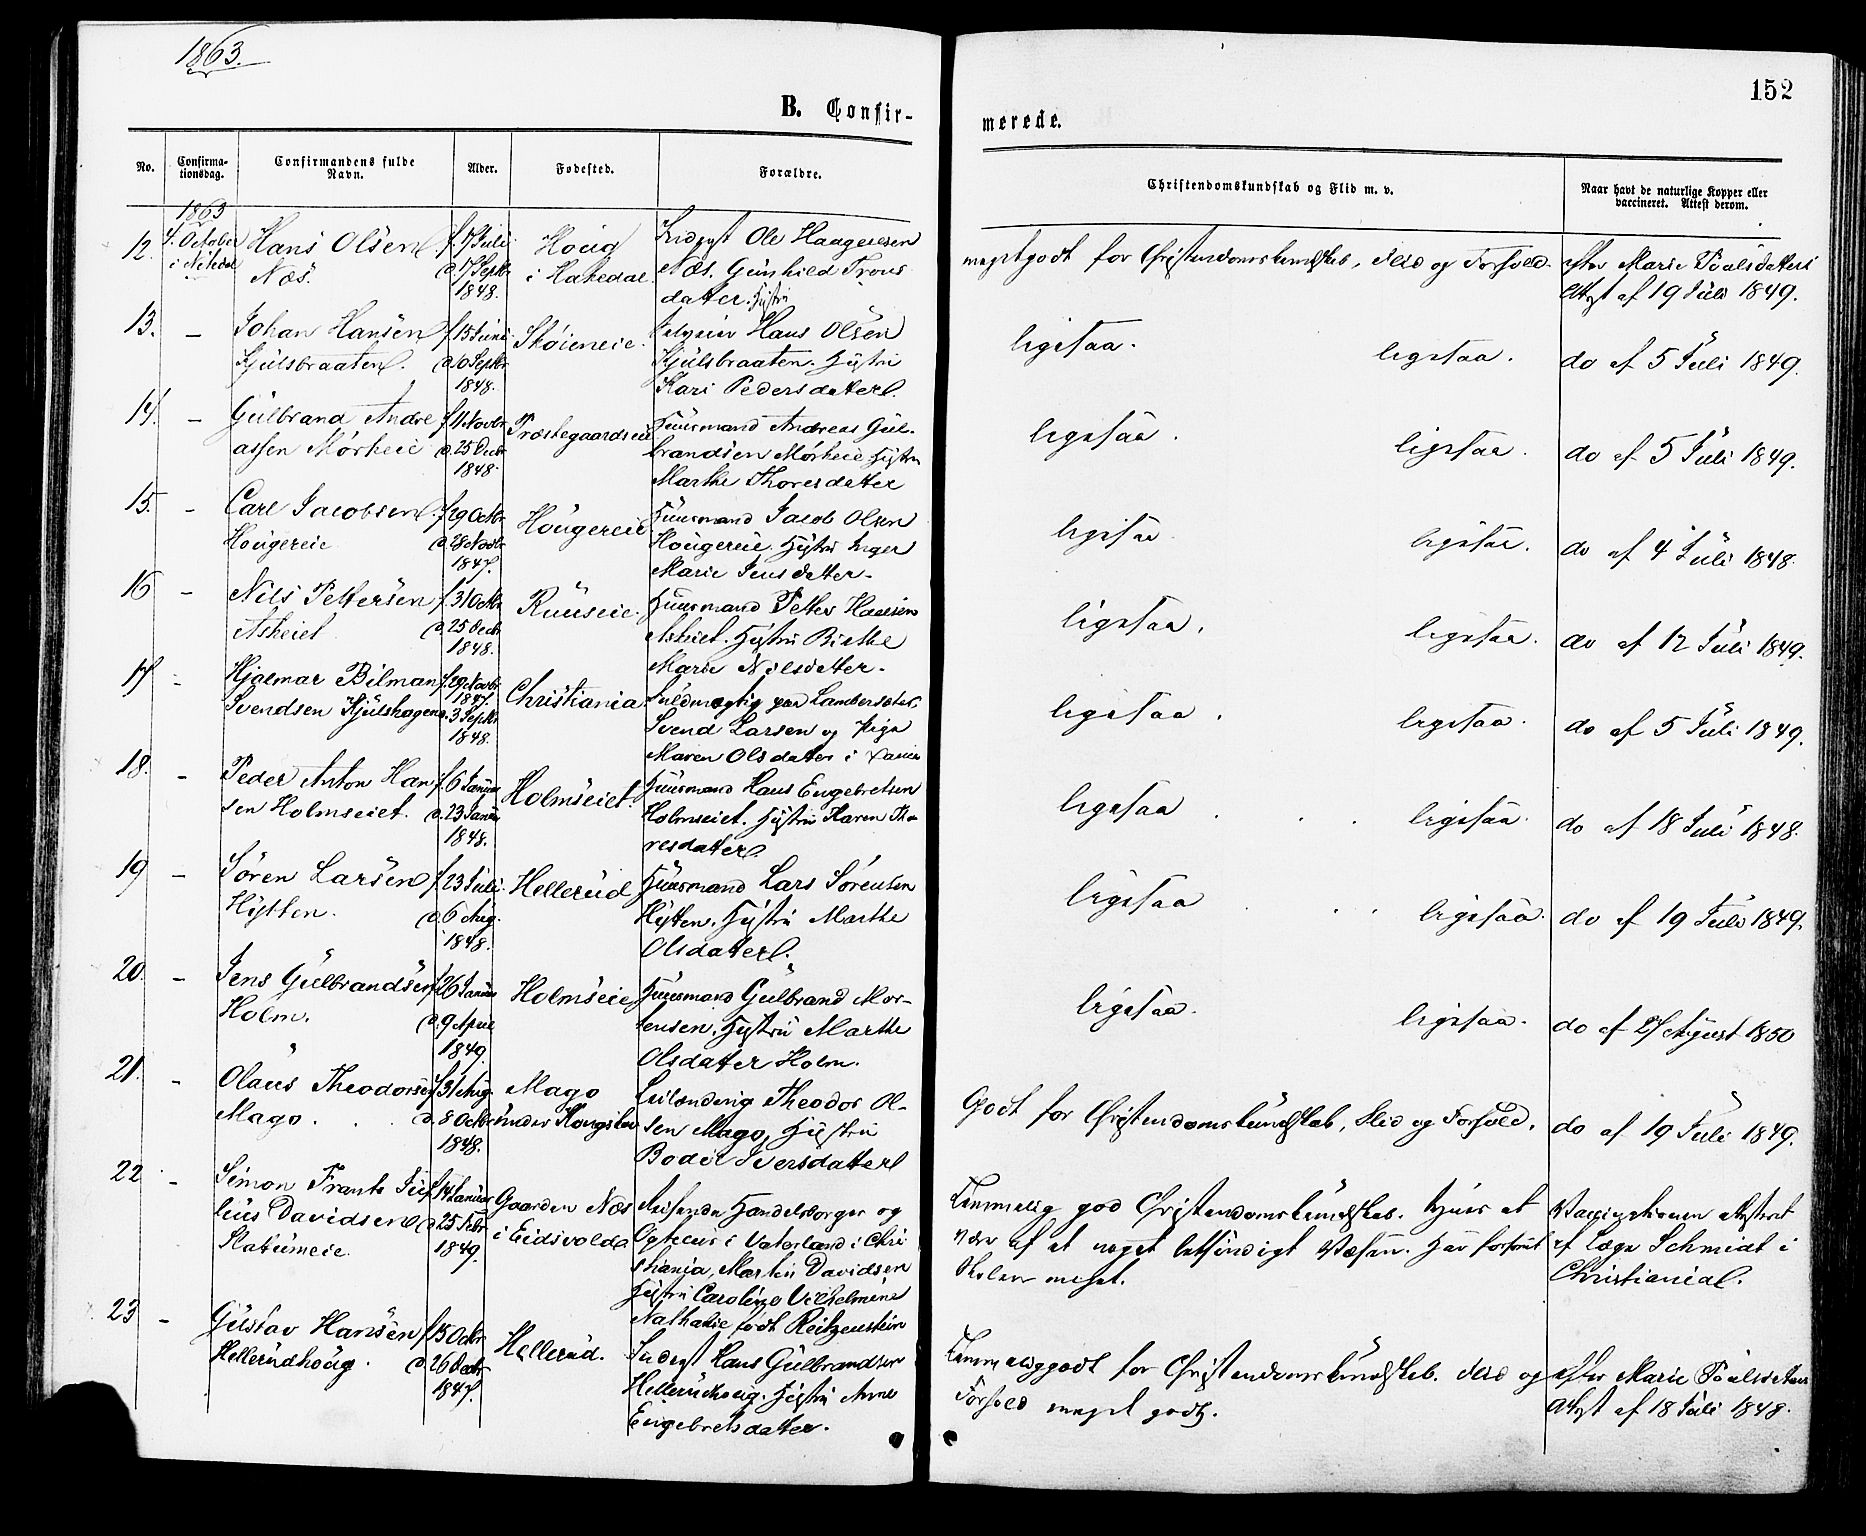 1863.
152
B. Confir-
merede.
No.
Confirma-
tionsdag.
Confirmandens fulde
Navn.
Alder.
Fødested.
Forældre.
Christendomskundskab og Flid m. v.
Naar havt de naturlige Kopper eller
vaccineret. Attest derom.
1863
12. 4. October Hans Olsen f. 17 Juli Houg Inderst Ole Haagensen
Næs. d. 17 Septbr i Hakedal Næs. Gunhild Trons
1848. datter. Hustru
megetgodt for Christendomskundskab, Flid og Forhold. efter Marie Poulsdatters
Attest af 19 Juli 1849.
13. - Johan Hansen f. 15 Juni Skøieneie. Hans Olsen
Kjulsbraaten. d. 10 Septbr Kjulsbraaten. Hustru
1848. Kari Pedersdatter.
ligesaa. ligesaa. do af 5 Juli 1849.
14. - Gulbrand Andre f. 11 Novbr Præstegaardseie Huusmand Andreas Gul-
assen Mørkeie d. 25 Decbr brandsen Mørkeie Hustru
1848. Marthe Thoresdatter
ligesaa. ligesaa. do af 5 Juli 1849.
15. - Carl Jacobsen f. 29 Octbr Hougereie Huusmand Jacob Olsen
Hougereie d. 28 Novbr Hougereie. Hustru Inger
1847. Marie Jensdatter.
ligesaa ligesaa. do af 4 Juli 1848.
16 - Nils Pettersen f. 31 Octbr Ruuseie. Huusmand Petter Hansen
Askeiet d. 25 Decbr Askeiet. Hustru Birthe
1848. Marie Nilsdatter.
ligesaa. ligesaa. do af 12 Juli 1849.
17 - Hjalmar Bilman f. 29 Novbr Christiania Fuldmægtig paa Lambersæter
1847.
Svendsen Kjulshagen d. 3 Septbr Svend Larsen og Pige
1848. Maren Olsdatter i
ligesaa. ligesaa. do af 5 Juli 1849.
18. - Peder Anton Han f. 6 Januar Holmseiet. Huusmand Hans Engebretsen
sen Holmseiet. d. 23 Januar Holmseiet. Hustru Karen Tho
1848. resdatter.
ligesaa ligesaa. do af 18 Juli 1848.
19 - Søren Larsen f. 23 Juli Hellerud Huusmand Lars Sørensen
Hytten. d. 6 Aug. Hytten. Hustru Marthe
1848. Olsdatter.
ligesaa ligesaa. do af 19 Juli 1849.
20. - Jens Gulbrandsen f. 26 Januar Holmseie Huusmand Gulbrand Mor-
Holm. d. 9 April tensen. Hustru Marthe
1849. Olsdatter Holm.
ligesaa. ligesaa. do af 27 August 1850
21. - Olaus Theodorsen f. 31 Aug. Mago Leilænding Theodor Ol-
Mago. d. 8 Octbr under sen Mago, Hustru
1848. Bodil Iversdatter
Godt for Christendomskundskab, Flid og Forhold. do af 19 Juli 1849.
22 - Simon Frants Ju f. 14 Januar Gaarden Næs Handelsborger og
lius Davidsen d. 25 Febr i Eidsvold i Vaterland i Chri
Slatumeie 1849. stiania, Martin Davidsen
Hustru Caroline Vilhelmine
Nathalie født Reitzenstein
Temmelig god Christendomskundskab. at
af et noget letsindigt Væsen. Har forsømt
Skolen meget.
Vaccinationen attesteret
af Læge Schmidt i
Christiania.
23 - Gustav Hansen f. 15 Octbr Hellerud. Inderst Hans Gulbrandsen
Hellerudhoug. d. 26 Decbr Hellerudhoug. Hustru Anne
1847. Engebretsdatter.
Temmeliggodt for Christendomskundskab. Flid og efter Marie Poulsdatters
Forhold meget godt. Attest af 18 Juli 1848.